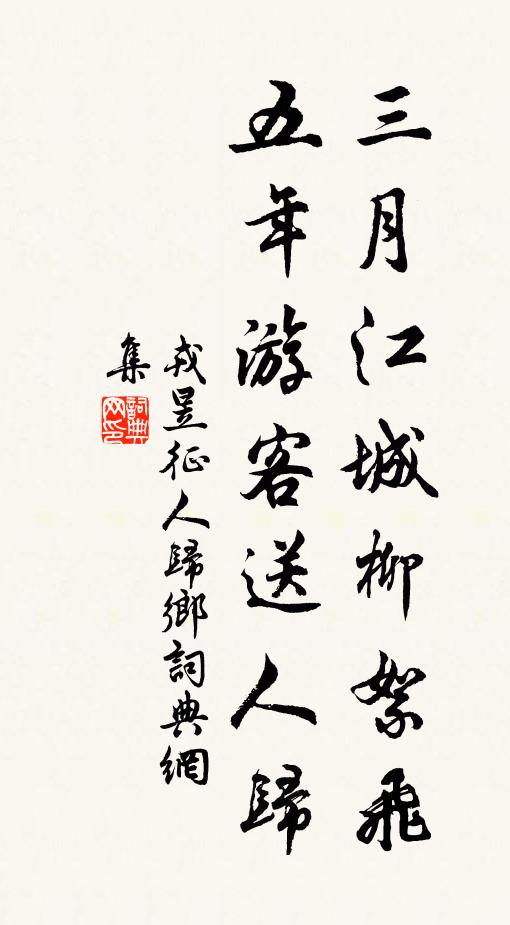 三月江城柳絮飛
五年游客送人歸
戎昱征人歸鄉詞典網
集
詞典
网印